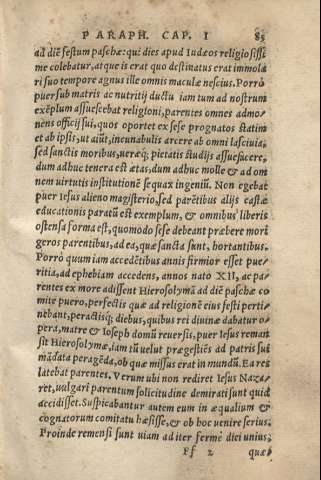 PARAPH. CAP. I 85
ad diē festum paschæ: qui dies apud Iudæos religiosissi
me colebatur, atque is erat quo destinatus erat immola
ri suo tempore agnus ille omnis maculæ nescius. Porrò
puer sub matris ac nutritij ductu iam tum ad nostrum
exēplum assuescebat religioni, parentes omnes admo
nens officij sui, quos oportet ex sese prognatos statim
et ab ipsis, ut aiūt, incunabulis arcere ab omni lasciuia,
sed sanctis moribus, ueræq; pietatis studijs assuefacere,
dum adhuc tenera est ætas, dum adhuc molle & ad om
nem uirtutis institutionē sequax ingeniū. Non egebat
puer Iesus alieno magisterio, sed parētibus alijs castæ
educationis paratū est exemplum, & omnibus liberis
ostensa forma est, quomodo sese debeant præbere mori
geros parentibus, ad ea, quæ sancta sunt, hortantibus.
Porrò quum iam accedētibus annis firmior esset pue
ritia, ad ephebiam accedens, annos nato XII, ac pa-
rentes ex more adissent Hierosolymā ad diē paschæ co
mite puero, perfectis quæ ad religionē eius festi perti-
nebant, peractisq; diebus, quibus rei diuinæ dabatur o
pera, matre & Ioseph domū reuersis, puer Iesus reman
sit Hierosolymæ, iam tū uelut prægestiēs ad patris sui
mādata peragēda, ob quæ missus erat in mundū. Ea res
latebat parentes. Verum ubi non rediret Iesus Naza-
ret, uulgari parentum solicitudine demirati sunt quid
accidisset. Suspicabantur autem eum in æqualium &
cognatorum comitatu hæsisse, & ob hoc uenire serius.
Proinde remensi sunt uiam ad iter fermè diei unius,
Ff 2 quæ